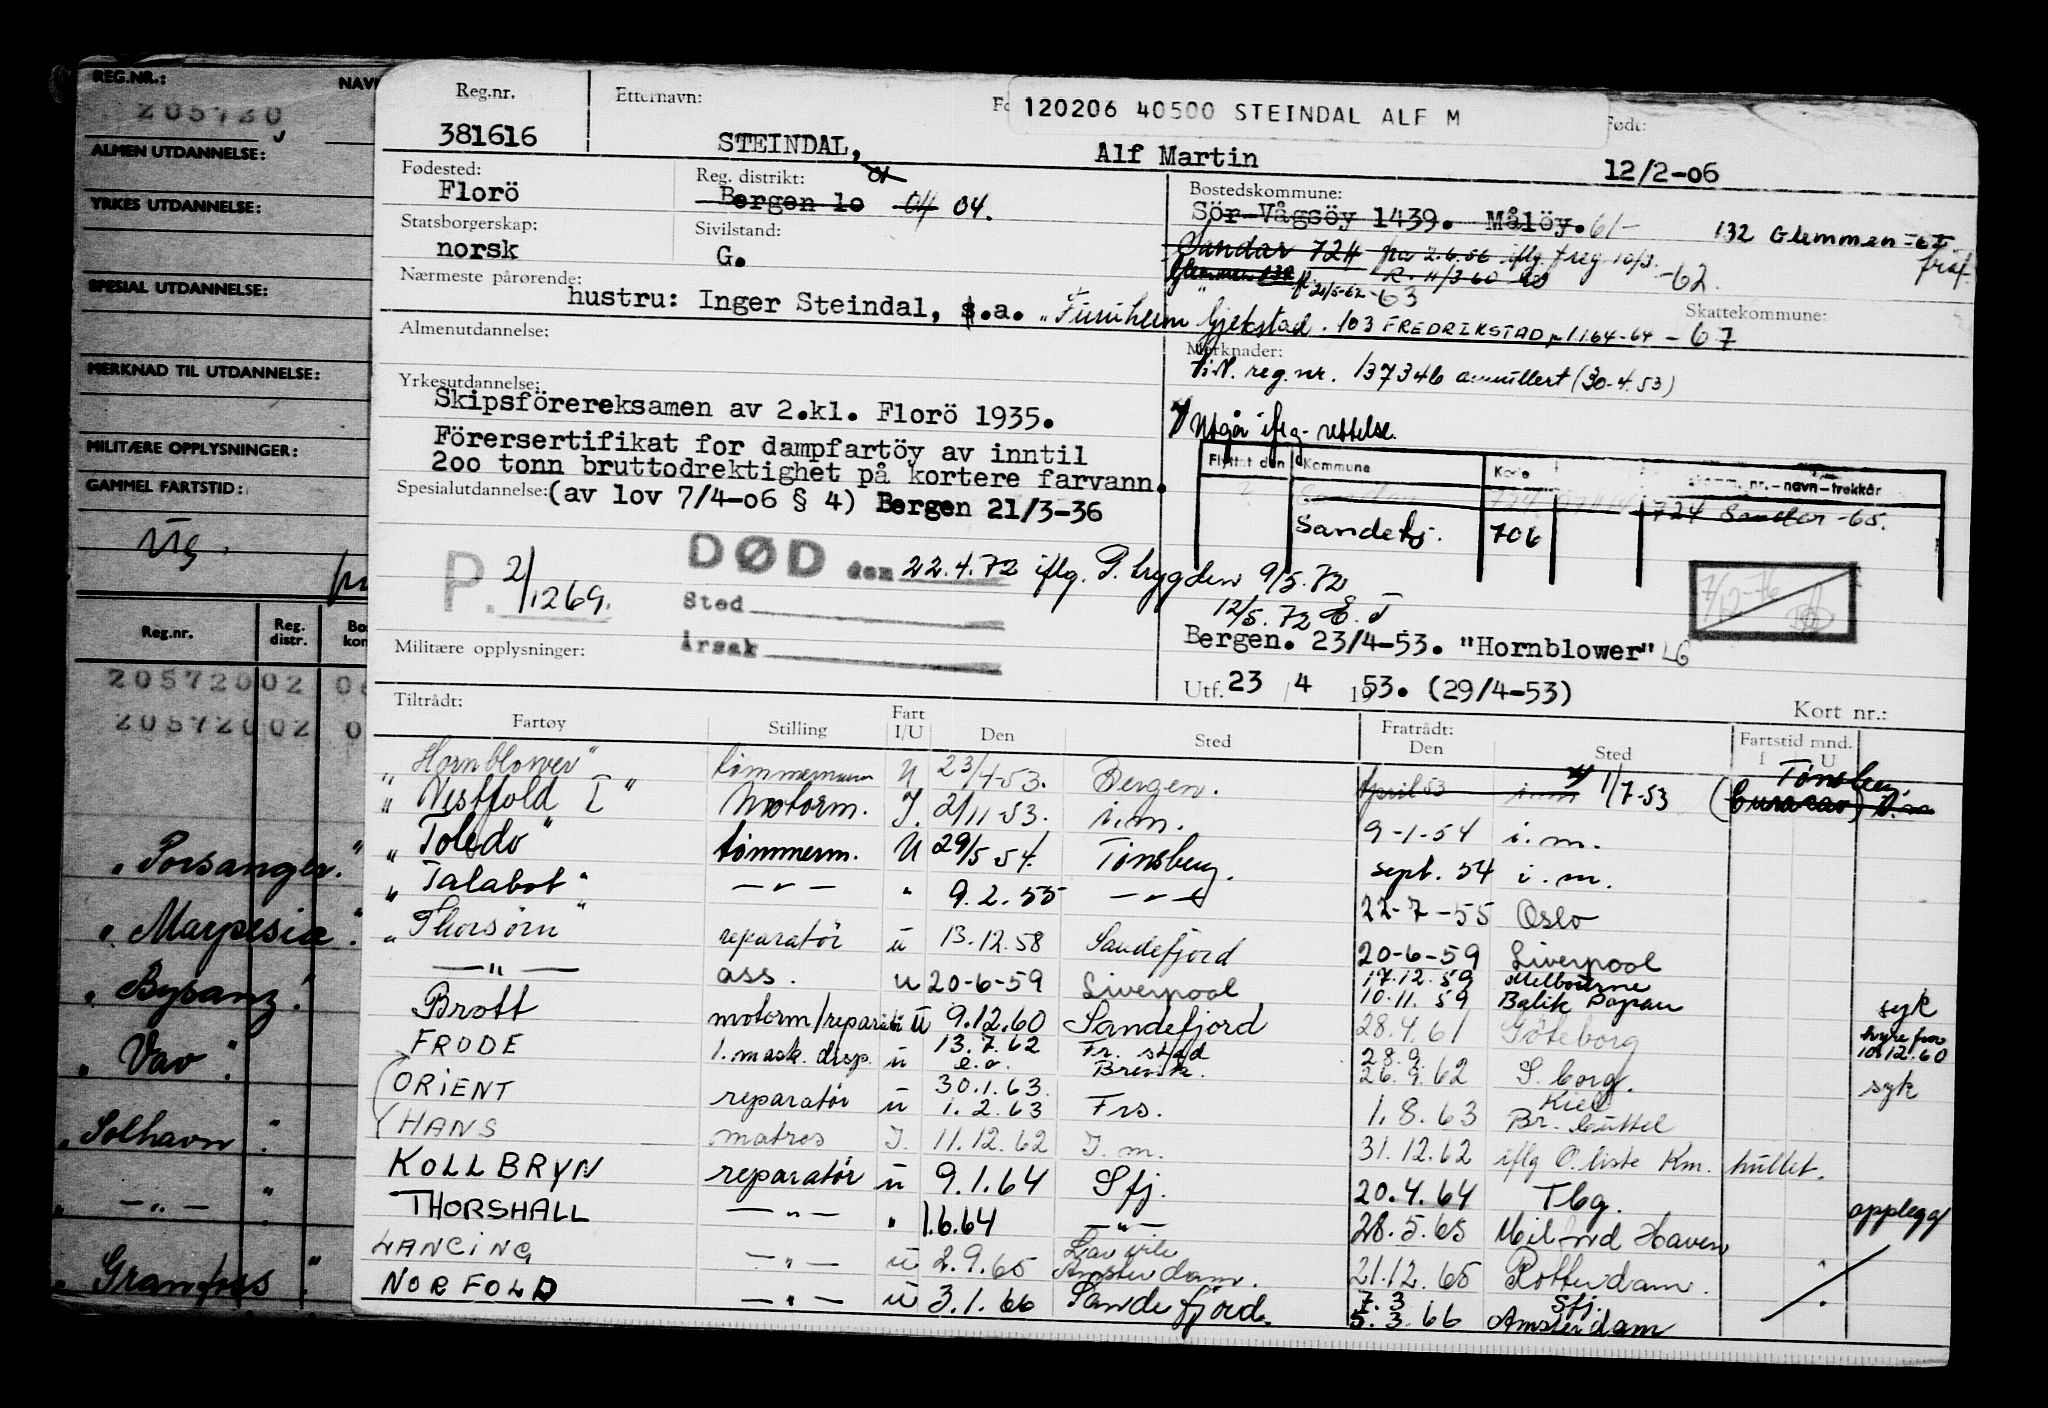 REG.NR.:
205720
ALMEN UTDANNELSE:
YRKES UTDANNELSE:
SPESIAL UTDANNELSE:
MERKNAD TIL UTDANNELSE:
MILITÆRE OPPLYSNINGER:
GAMMEL FARTSTID:
Reg.nr. Reg. distr.
20572002
20572002
"Porsanger"
"Marpesia"
"Bysanz"
"Vav"
"Solhavn"
— " —
"Granfoss"
Reg.nr. Etternavn: Født:
120206 40500 STEINDAL ALF M
381616 STEINDAL, Alf Martin 12/2-06
Fødested: Reg. distrikt: Bostedskommune:
Florö Bergen 10 04 04. Sör-Vågsöy 1439. Målöy. 61- 132 Glemmen
Statsborgerskap: Sivilstand:
norsk G. Sandar 724 fra 2.6.56 iflg. freg 10/3. -62.
Nærmeste pårørende:
hustru: Inger Steindal, s.a. "Furuheim Gjekstad. 103 FREDRIKSTAD 1.1.64-64 -67
Skattekommune:
Almenutdannelse: Merknader:
reg.nr. 137346 annullert (30-4.53)
Yrkesutdannelse:
Skipsförereksamen av 2.kl. Florö 1935.
Utgår iflg. rettelse.
Förersertifikat for dampfartöy av inntil
200 tonn bruttodrektighet på kortere farvann.
Flyttet den Kommune Kode nr.-navn-trekkår
724 Sandar-65.
Spesialutdannelse: (av lov 7/4-06 § 4) Bergen 21/3-36
Sandefj. 706
P. 2/1269.
DØD den 22.4.72 iflg. P. trygden 9/5.72
12/5.72 E.T
Sted
Årsak
7/12-76
Militære opplysninger: Bergen. 23/4-53. "Hornblower"
Utf. 23/4 1953. (29/4-53)
Tiltrådt: Kort nr.:
Fartøy Stilling Fart I/U Den Sted Fratrådt: Den Sted Fartstid mnd. I U
"Hornblower" tømmermann U 23/4-53. Bergen. April 53 i.m 1/7-53 (Curacao) Tønsberg.
"Vestfold I" Motorm. I. 2/11-53. i.m. 9-1-54 i.m.
"Toledo" tømmerm. U 29/5 54. Tønsberg. sept. 54 i.m.
"Talabot" — " — " 9.2.55 — " — 22-7-55 Oslo
"Thorsørn" reparatør u 13.12.58 Sandefjord 20-6-59 Liverpool
— " — ass. u 20-6-59 Liverpool 17.12.59 Melbourne
10.11.59 Balik Papan syk
Brott motorm/reparatør u 9.12.60 Sandefjord 28.4.61 Göteborg hyre fra 10.12.60
FRODE 1. mask. disp. u 13.7.62 Fr. stad 28.9.
e.o. Brevik. 26.9.62 S.borg. syk
ORIENT reparatør u 30.1.63
1.2.63 Frs. 1.8.63 Kiel
HANS matros I. 11.12.62 I.m. 31.12.62 iflg O.liste Km. hullet.
KOLLBRYN reparatør u 9.1.64 Sfj. 20.4.64 Tbg. opplegg
THORSHALL — " — " 1.6.64 — " — 28.5.65 Milford Haven
LANCING — " — u 2.9.65 Amsterdam. 21.12.65 Rotterdam.
NORFOLD — " — u 3.1.66 Sandefjord. 7.3 Sfj.
5.3.66 Amsterdam